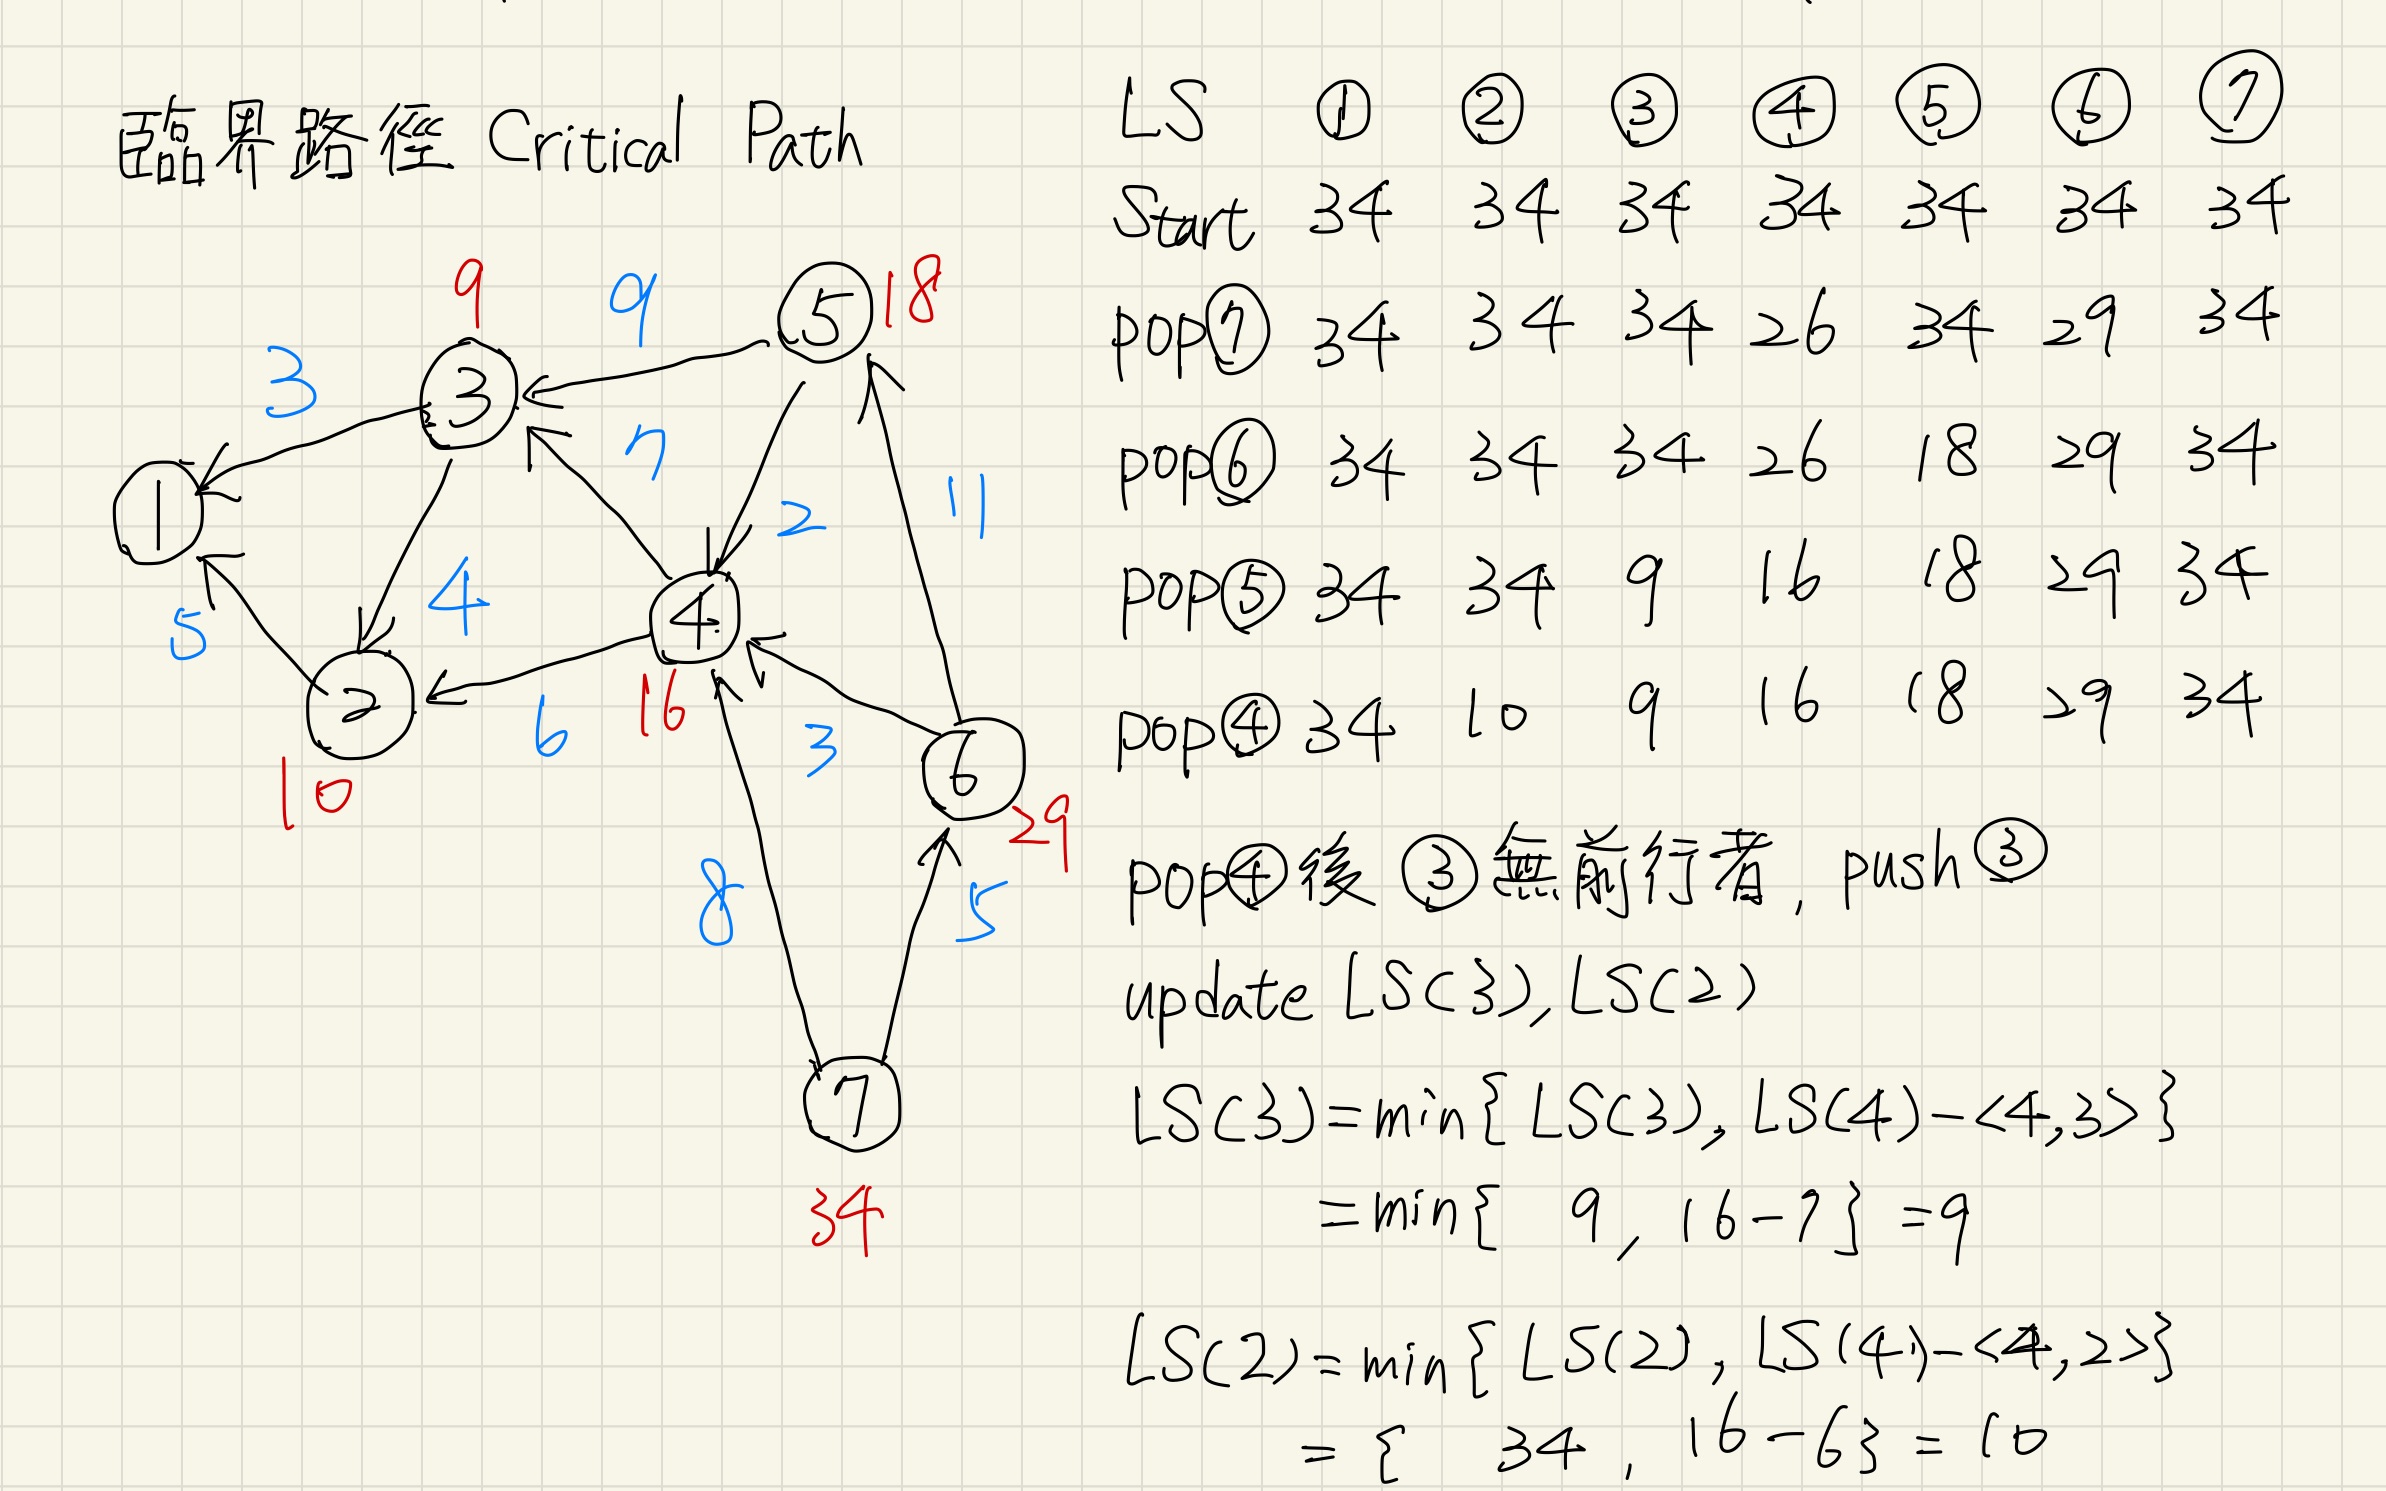 臨界路徑 Critical Path
9
9
⑤ 18
3
③
7
①
2
11
4
5
④
②
6
16
3
⑥
10
29
8
5
⑦
34
LS ① ② ③ ④ ⑤ ⑥ ⑦
Start 34 34 34 34 34 34 34
pop⑦ 34 34 34 26 34 29 34
pop⑥ 34 34 34 26 18 29 34
pop⑤ 34 34 9 16 18 29 34
pop④ 34 10 9 16 18 29 34
pop④後 ③無前行者, push③
update LS(3), LS(2)
LS(3)=min{ LS(3), LS(4)-<4,3>}
=min{ 9, 16-7} =9
LS(2)=min{ LS(2), LS(4)-<4,2>}
={ 34, 16-6} = 10